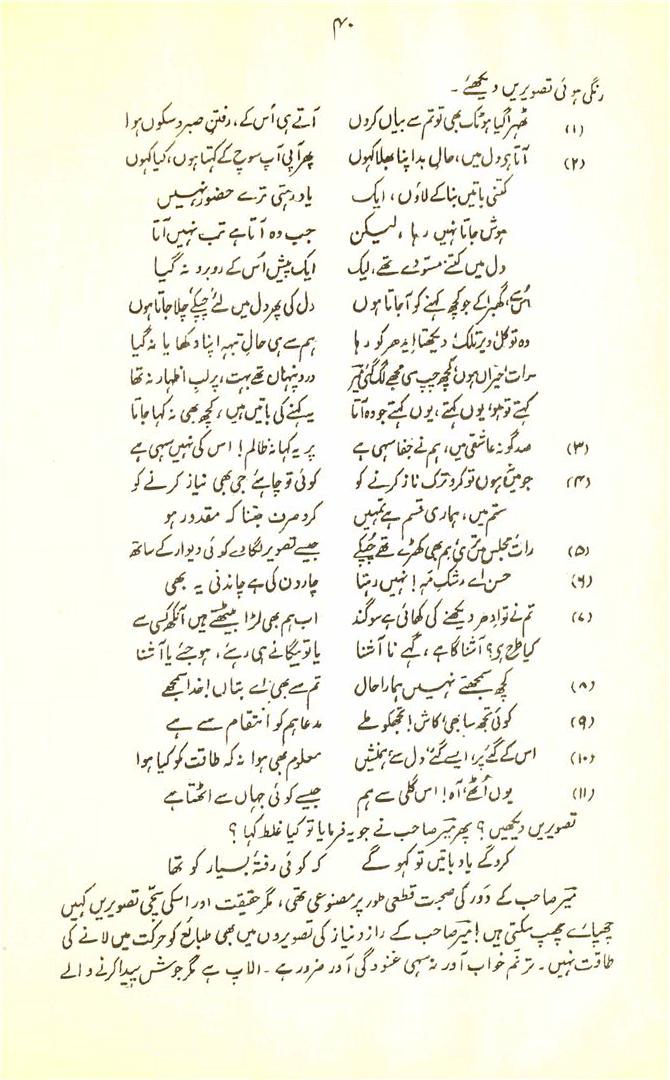 ۴۰
رنگی ہوئی تصویریں دیکھئے ۔
(۱) ٹھہر گیا ہو ٹک بھی تو تم سے بیاں کروں آتے ہی اُس کے، رفتنِ صبر و سکوں ہوا
(۲) آتا ہو دل میں، حالِ بد اپنا بھلا کہوں پھر آپی آپ سوچ کے کہتا ہوں، کیا کہوں
کتنی باتیں بنا کے لاؤں، ایک یاد رہتی ترے حضور نہیں
ہوش جاتا نہیں رہا، لیکن جب وہ آتا ہے تب نہیں آتا
دل میں کتنے مسودے تھے، لیک ایک پیش اُس کے روبرو نہ گیا
اُس سے، گھبرا کے جو کچھ کہنے کو آ جاتا ہوں دل کی پھر دل میں لئے چپکے چلا جاتا ہوں
وہ تو کل دیر تلک دیکھتا اِیدھر کو رہا ہم سے ہی حالِ تبہ اپنا دکھایا نہ گیا
رات حیراں ہوں، کچھ چپ سی مجھے لگ گئی میر دردِ پنہاں تھے بہت، پر لبِ اظہار نہ تھا
کہتے تو ہو، یوں کہتے، یوں کہتے جو وہ آتا یہ کہنے کی باتیں ہیں، کچھ بھی نہ کہا جاتا
(۳) صد گونہ عاشقی میں، ہم نے جفا سہی ہے پر یہ کہا نہ ظالم! اس کی نہیں سہی ہے
(۴) جو میں ہوں تو کرو ترک ناز کرنے کو کوئی تو چاہئے جی بھی نیاز کرنے کو
ستم میں، ہماری قسم ہے تمہیں کرو صرف جتنا کہ مقدور ہو
(۵) رات مجلس میں تری ہم بھی کھڑے تھے چُپکے جیسے تصویر لگا دے کوئی دیوار کے ساتھ
(۶) حسن اے رشکِ مہ! نہیں رہتا چار دن کی ہے چاندنی یہ بھی
(۷) تم نے تو ادھر دیکھنے کی کھائی ہے سوگند اب ہم بھی لڑا بیٹھتے ہیں آنکھ کسی سے
کیا طرح ہے؟ آشنا گاہے، گہے نا آشنا یا تو بیگانے ہی رہئے، ہوجئے یا آشنا
(۸) کچھ سمجھتے نہیں ہمارا حال تم سے بھی اے بتاں! خدا سمجھے
(۹) کوئی تجھ سا بھی، کاش! تجھ کو ملے مدعا ہم کو انتقام سے ہے
(۱۰) اس کے گئے پر، ایسے گئے دل سے، ہمنشیں معلوم بھی ہوا نہ کہ طاقت کو کیا ہوا
(۱۱) یوں اُٹھے، آہ! اس گلی سے ہم جیسے کوئی جہاں سے اٹھتا ہے
تصویریں دیکھیں؟ پھر میر صاحب نے جو یہ فرمایا تو کیا غلط کہا؟
کرو گے یاد باتیں تو کہو گے کہ کوئی رفتۂ بسیار گو تھا
میر صاحب کے دَور کی صحبت قطعی طور پر مصنوعی تھی، مگر حقیقت اور اسکی سچی تصویریں کہیں
چھپائے چھپ سکتی ہیں! میر صاحب کے راز و نیاز کی تصویروں میں بھی طبائع کو حرکت میں لانے کی
طاقت نہیں۔ ترنم خواب آور نہ سہی غنودگی آور ضرور ہے۔ الاپ ہے مگر جوش پیدا کرنے والے